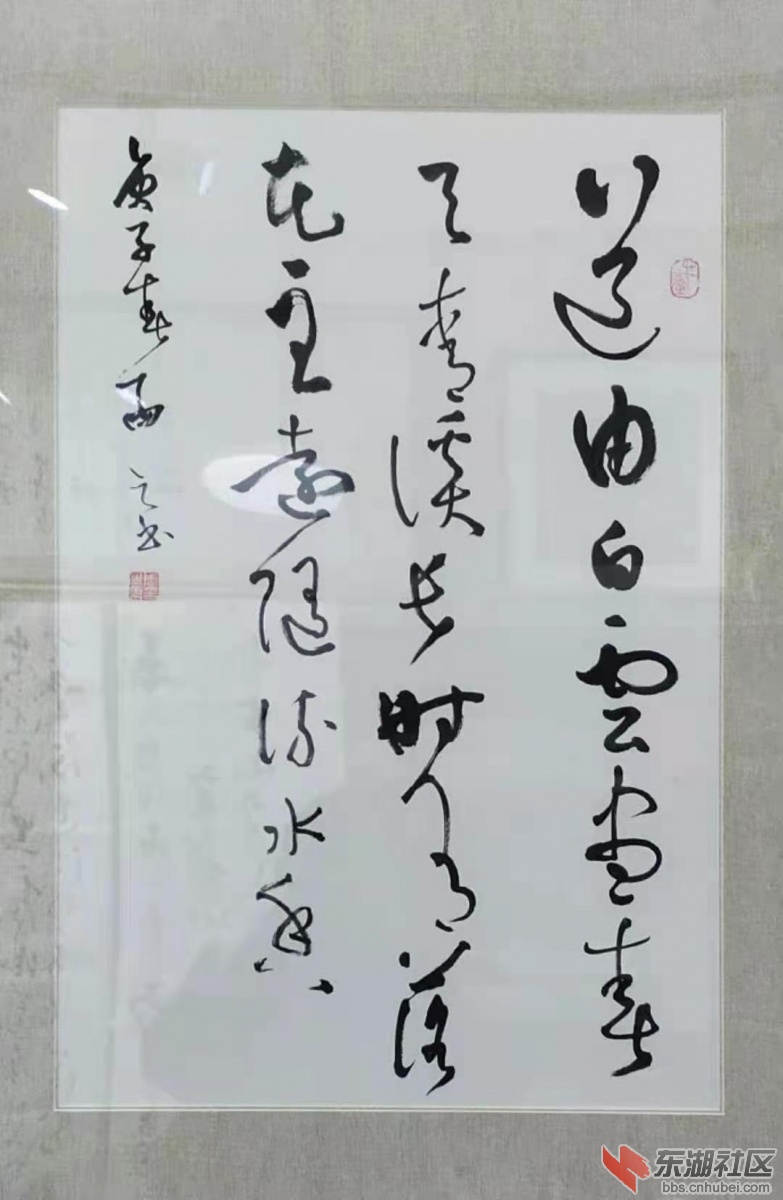 道由白雲盡春
与青溪长时有落
花至遠随流水香
庚子春之书
东湖社区
bbs.cnhubei.com